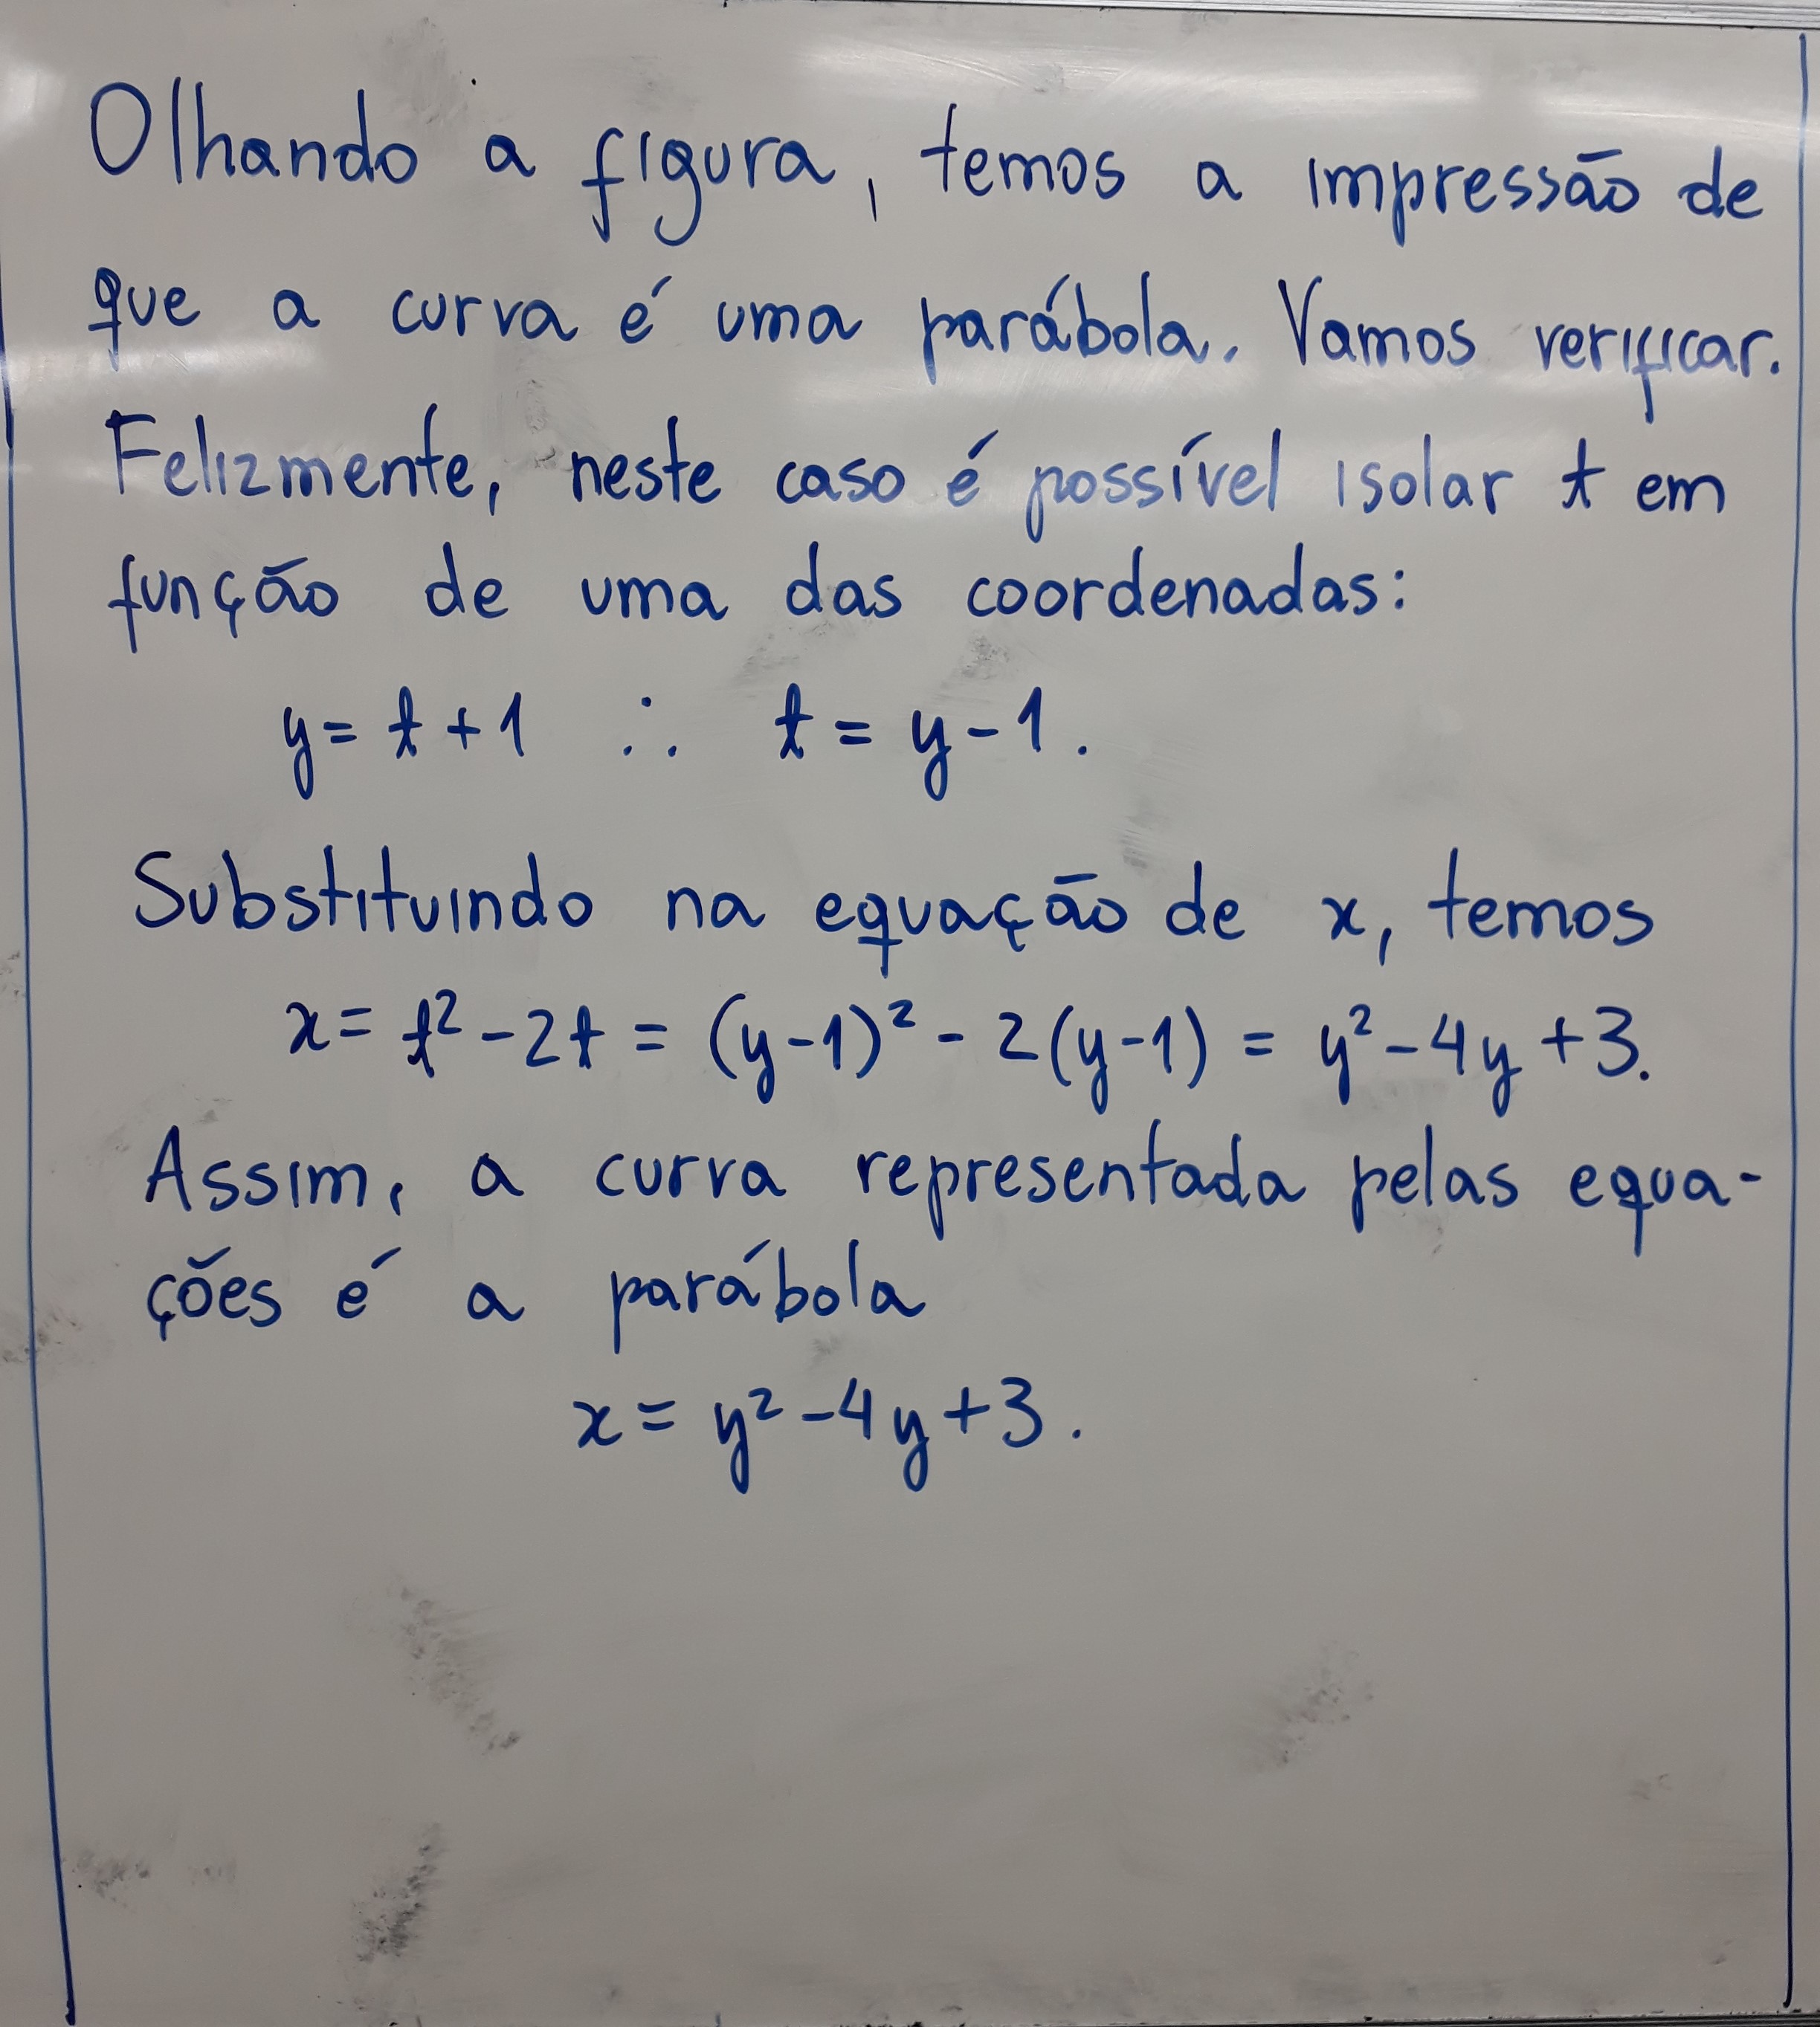 Olhando a figura, temos a impressão de
que a curva é uma parábola. Vamos verificar.
Felizmente, neste caso é possível isolar t em
função de uma das coordenadas:
y = t + 1 ∴ t = y - 1.
Substituindo na equação de x, temos
x = t² - 2t = (y-1)² - 2(y-1) = y² - 4y + 3.
Assim, a curva representada pelas equa-
ções é a parábola
x = y² - 4y + 3.